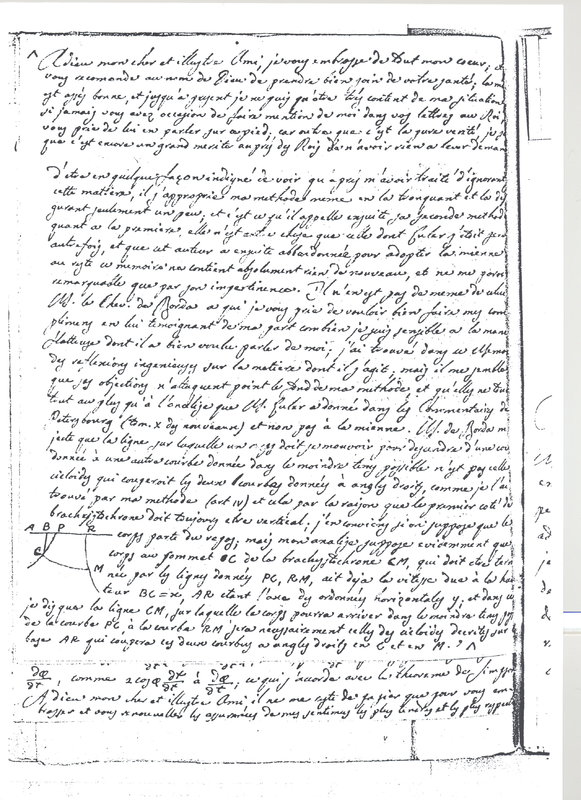 Adieu mon cher et illustre Ami, je vous embrasse de tout mon coeur, et
vous recomande au nom de Dieu de prendre bien soin de votre santé; la m
est assés bonne, et jusqu'à present je ne puis qu'etre très content de ma situation
si jamais vous avez occasion de faire mention de moi dans vos lettres au Roi,
vous prie de lui en parler sur ce pied; car outre que c'est la pure verité, je s
que c'est encore un grand merite auprès du Roi de n'avoir rien a leur deman
d'etre en quelque façon indigné de voir qu'après m'avoir traité d'ignorant
cette matiere, il s'approprie ma methode meme en la tronquant et la de
gurant seulement un peu; et c'est ce qu'il appelle ensuite sa seconde method
quant a la premiere, elle n'est autre chose que celle dont Euler s'etoit servi
autrefois, et que cet auteur a ensuite abbandonnée pour adopter la mienne
au reste ce memoire ne contient absolument rien de nouveau, et ne me paroit
remarquable que par son impertinence. Il n'en est pas de meme de celui
M. le Chev. de Borda a qui je vous prie de vouloir bien faire mes com
plimens en lui temoignant de ma part combien je suis sensible a la mani
flatteuse dont il a bien voulu parler de moi; j'ai trouvé dans ce Memo
des reflexions ingenieuses sur la matiere dont il s'agit; mais il me semble
que ses objections n'attaquent point le fond de ma methode et qu'elles ne
tout au plus qu'à l'analise que M. Euler a donné dans les Commentaires de
Petersbourg (tom. X des nouveaux) et non pas à la mienne. M. de Borda
jecte que la ligne sur laquelle un corps doit se mouvoir pour descendre d'une cou
donnée à une autre courbe donnée dans le moindre tems possible n'est pas celle
cicloide qui couperoit les deux courbes données à angles droits, comme je l'ai
trouvé par ma methode (art IV) et cela par la raison que le premier coté de
brachystochrone doit toujours etre vertical; j'en conviens si on suppose que le
A B P R
corps parte du repos; mais mon analise suppose evidemment que
C
corps au sommet C de la brachystochrone CM, qui doit etre ter
M
née par les lignes données PC, RM, ait deja la vitesse due à la hau
teur BC=x, AR etant l'axe des ordonnées horizontales y; et dans ce
je dis que la ligne CM, sur laquelle le corps pourra arriver dans le moindre tems
de la courbe PC à la courbe RM sera necessairement celle des cicloides decrites sur
base AR qui coupera ces deux courbes a angles droits en C et en M.
, comme 2 cos à , ce qui s'accorde avec le theoreme de Simpson
Adieu mon cher et illustre Ami, il ne me reste de papier que pour vous em
brasser et vous renouveller les assurances de mes sentimens les plus tendres et les plus respect